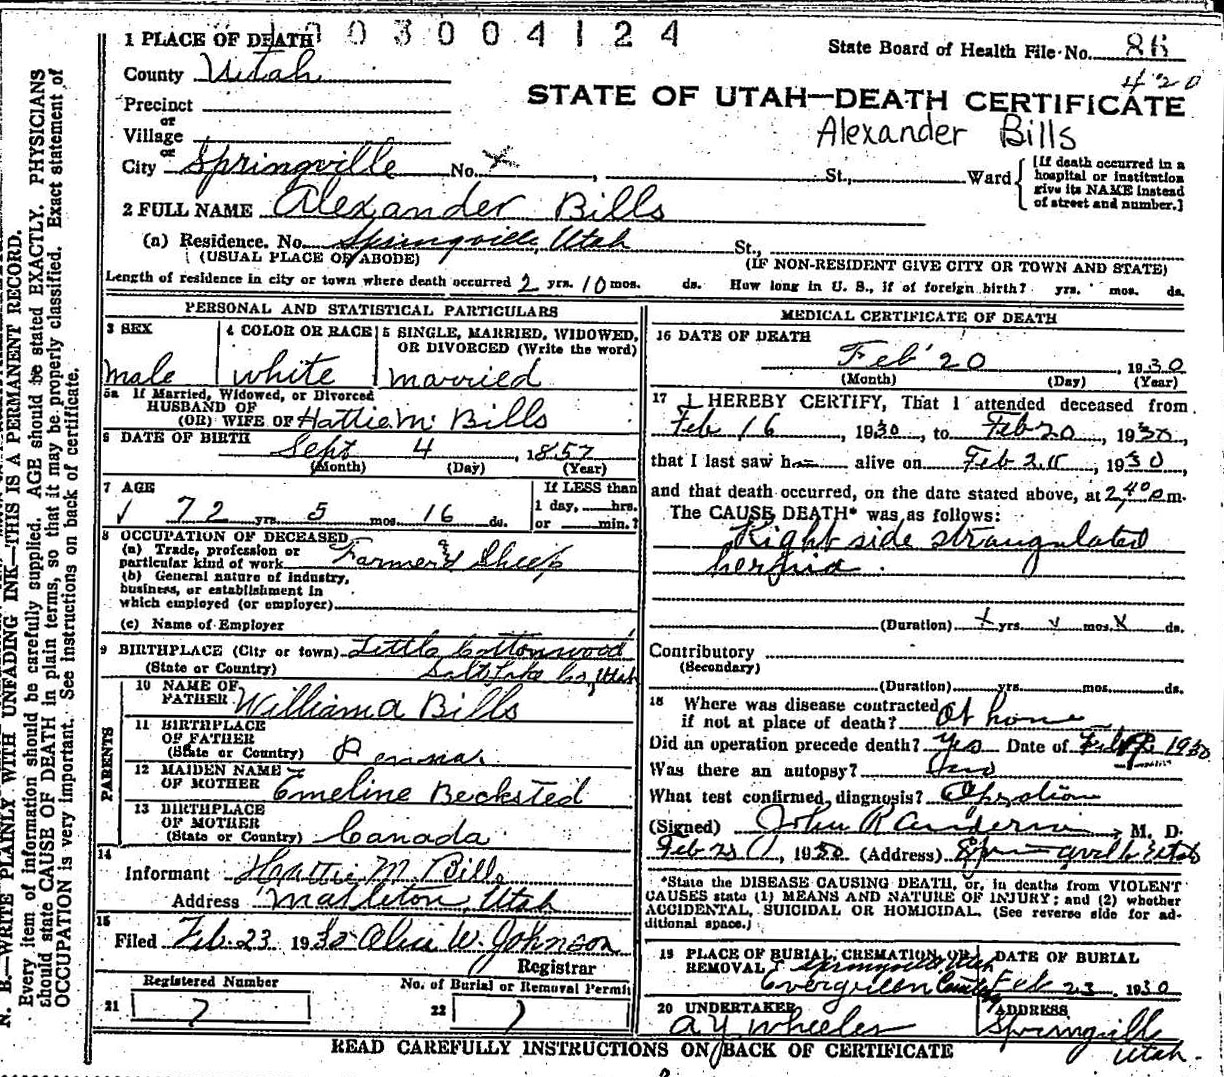 1 PLACE OF DEATH
003004124
State Board of Health File No. 86
420
County Utah
STATE OF UTAH—DEATH CERTIFICATE
Precinct
or
Village
Alexander Bills
or
City Springville No. x , St., Ward
[If death occurred in a hospital or institution give its NAME instead of street and number.]
2 FULL NAME Alexander Bills
(a) Residence. No. Springville, Utah St.,
(USUAL PLACE OF ABODE) (IF NON-RESIDENT GIVE CITY OR TOWN AND STATE)
Length of residence in city or town where death occurred 2 yrs. 10 mos. ds. How long in U. S., if of foreign birth? yrs. mos. ds.
PERSONAL AND STATISTICAL PARTICULARS
3 SEX
male
4 COLOR OR RACE
white
5 SINGLE, MARRIED, WIDOWED, OR DIVORCED (Write the word)
married
5a If Married, Widowed, or Divorced
HUSBAND OF
(OR) WIFE OF Hattie M. Bills
6 DATE OF BIRTH Sept 4 , 1857
(Month) (Day) (Year)
7 AGE
72 yrs. 5 mos. 16 ds.
If LESS than
1 day, hrs.
or min.?
8 OCCUPATION OF DECEASED
(a) Trade, profession or
particular kind of work Farmer & Sheep
(b) General nature of industry,
business, or establishment in
which employed (or employer)
(c) Name of Employer
9 BIRTHPLACE (City or town) Little Cottonwood
(State or Country) Salt Lake Co, Utah
PARENTS
10 NAME OF
FATHER William A Bills
11 BIRTHPLACE
OF FATHER
(State or Country) Penna.
12 MAIDEN NAME
OF MOTHER Emeline Becksted
13 BIRTHPLACE
OF MOTHER
(State or Country) Canada
14
Informant Hattie M. Bills
Address Mapleton, Utah
15
Filed Feb. 23 1930 Alice W. Johnson
Registrar
Registered Number
21 7
No. of Burial or Removal Permit
22 7
MEDICAL CERTIFICATE OF DEATH
16 DATE OF DEATH
Feb 20 , 1930
(Month) (Day) (Year)
17 I HEREBY CERTIFY, That I attended deceased from
Feb 16 , 1930, to Feb 20 , 1930,
that I last saw h alive on Feb 20 , 1930,
and that death occurred, on the date stated above, at 2:40 m.
The CAUSE DEATH* was as follows:
Right side strangulated
hernia.
(Duration) x yrs. x mos. x ds.
Contributory
(Secondary)
(Duration) yrs. mos. ds.
18 Where was disease contracted
if not at place of death? At home
Did an operation precede death? Yes Date of Feb 1930
Was there an autopsy?
What test confirmed diagnosis? Operation
(Signed) John R Anderson , M. D.
Feb , 1930 (Address) Springville Utah
*State the DISEASE CAUSING DEATH, or, in deaths from VIOLENT
CAUSES state (1) MEANS AND NATURE OF INJURY; and (2) whether
ACCIDENTAL, SUICIDAL OR HOMICIDAL. (See reverse side for ad-
ditional space.)
19 PLACE OF BURIAL, CREMATION, OR
REMOVAL Springville Utah
Evergreen Cemetery
DATE OF BURIAL
Feb 23 . 1930
20 UNDERTAKER
A Y Wheeler
ADDRESS
Springville
Utah.
READ CAREFULLY INSTRUCTIONS ON BACK OF CERTIFICATE
N. B.—WRITE PLAINLY WITH UNFADING INK—THIS IS A PERMANENT RECORD.
Every item of information should be carefully supplied. AGE should be stated EXACTLY. PHYSICIANS
should state CAUSE OF DEATH in plain terms, so that it may be properly classified. Exact statement of
OCCUPATION is very important. See instructions on back of certificate.